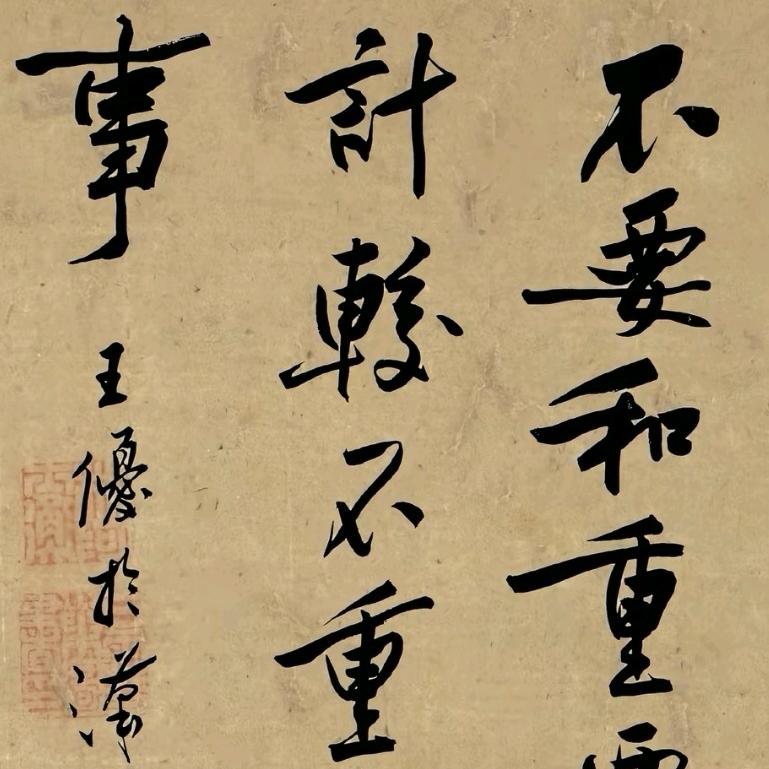 不要和重
計較不重
事
王優於漢